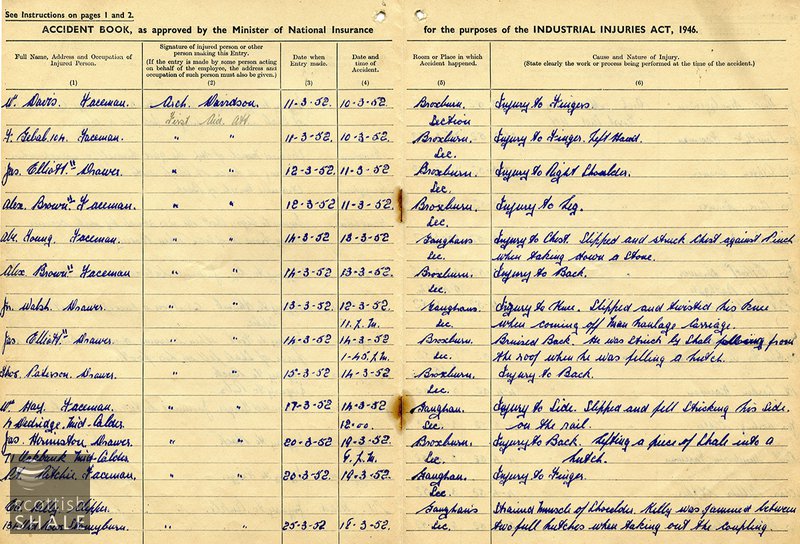 See Instructions on pages 1 and 2.
ACCIDENT BOOK, as approved by the Minister of National Insurance for the purposes of the INDUSTRIAL INJURIES ACT, 1946.
Full Name, Address and Occupation of Injured Person.
(1)
Signature of injured person or other person making this Entry.
(If the entry is made by some person acting on behalf of the employee, the address and occupation of such person must also be given.)
(2)
Date when Entry made.
(3)
Date and time of Accident.
(4)
Room or Place in which Accident happened.
(5)
Cause and Nature of Injury.
(State clearly the work or process being performed at the time of the accident.)
(6)
W. Davis. Faceman. Arch. Davidson. 11-3-52. 10-3-52. Broxburn. Injury to Fingers.
First Aid Att. Section
Faceman. " " 11-3-52. 10-3-52. Broxburn. Injury to Finger. Left Hand.
Sec.
Jas. Elliott " Drawer " " 12-3-52 11-3-52. Broxburn. Injury to Right Shoulder.
Sec.
Alex. Brown " Faceman. " " 12-3-52 11-3-52. Broxburn. Injury to Leg.
Sec.
Young Faceman. " " 14-3-52 13-3-52 Gaughans Injury to Chest. Slipped and struck Chest against Pinch
Sec. when taking down a Stone.
Alex. Brown " Faceman " " 14-3-52 13-3-52. Broxburn. Injury to Back.
Sec.
Walsh. Drawer. " " 13-3-52 12-3-52. Gaughans Injury to Knee. Slipped and twisted his Knee
11. P.M. Sec. when coming off Man haulage Carriage.
Jas. Elliott " Drawer. " " 14-3-52 14-3-52 Broxburn Bruised Back. He was Struck by Shale falling from
1-45. P.M. Sec. the roof when he was filling a hutch.
Thos. Paterson. Drawer. " " 15-3-52 14-3-52. Broxburn. Injury to Back.
Sec.
Wm Hay. Faceman. " " 17-3-52 14-3-52 Gaughan. Injury to Side. Slipped and fell Striking his Side
Mid-Calder. 12-00. Sec. on the rail.
Jas. Hermiston Drawer " " 20-3-52 19-3-52 Broxburn. Injury to Back. Lifting a piece of Shale into a
Mid-Calder P.M. Sec. hutch.
Ritchie, Faceman. " " 20-3-52 19-3-52. Gaughan. Injury to Finger.
Sec.
Kelly. Clipper. Gaughans Strained Muscle of Shoulder. Kelly was jammed between
" " 25-3-52 Sec. two full hutches when taking out the coupling.
scottish
SHALE